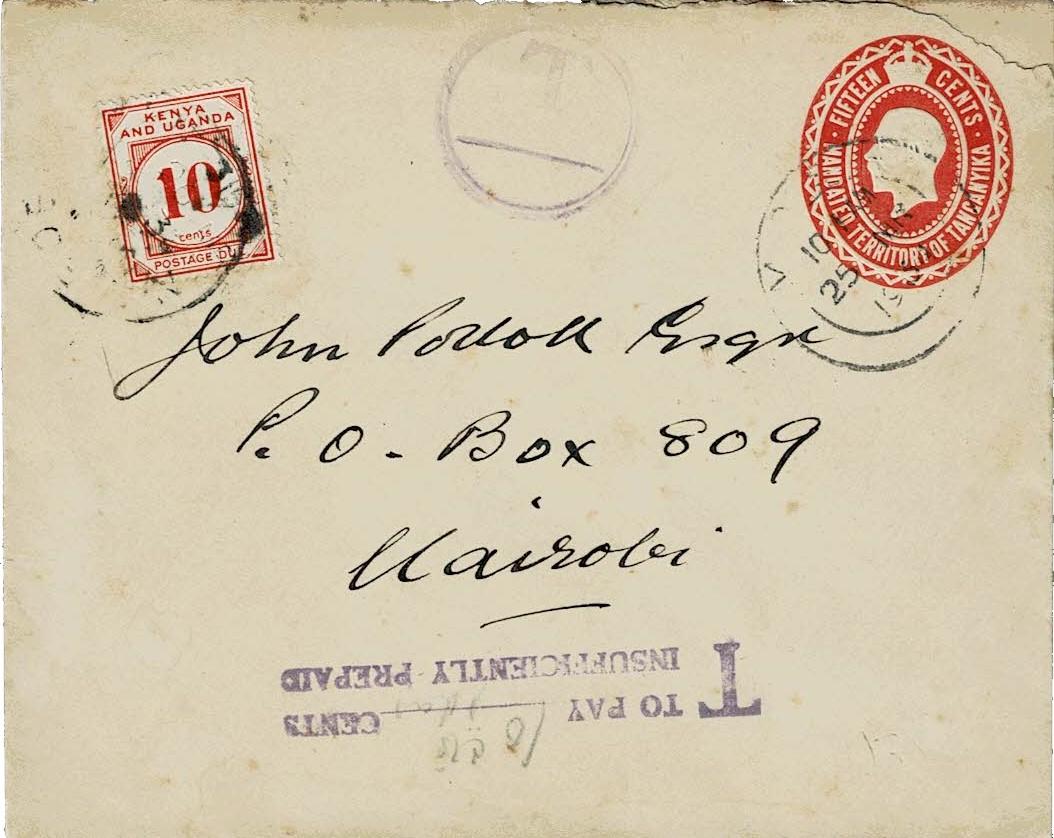 KENYA
AND UGANDA
10
cents
POSTAGE DUE
T
FIFTEEN CENTS
MANDATED TERRITORY OF TANGANYIKA
10 PM
25
John Esqr
P.O. Box 809
Nairobi
T
INSUFFICIENTLY PREPAID
TO PAY CENTS
10